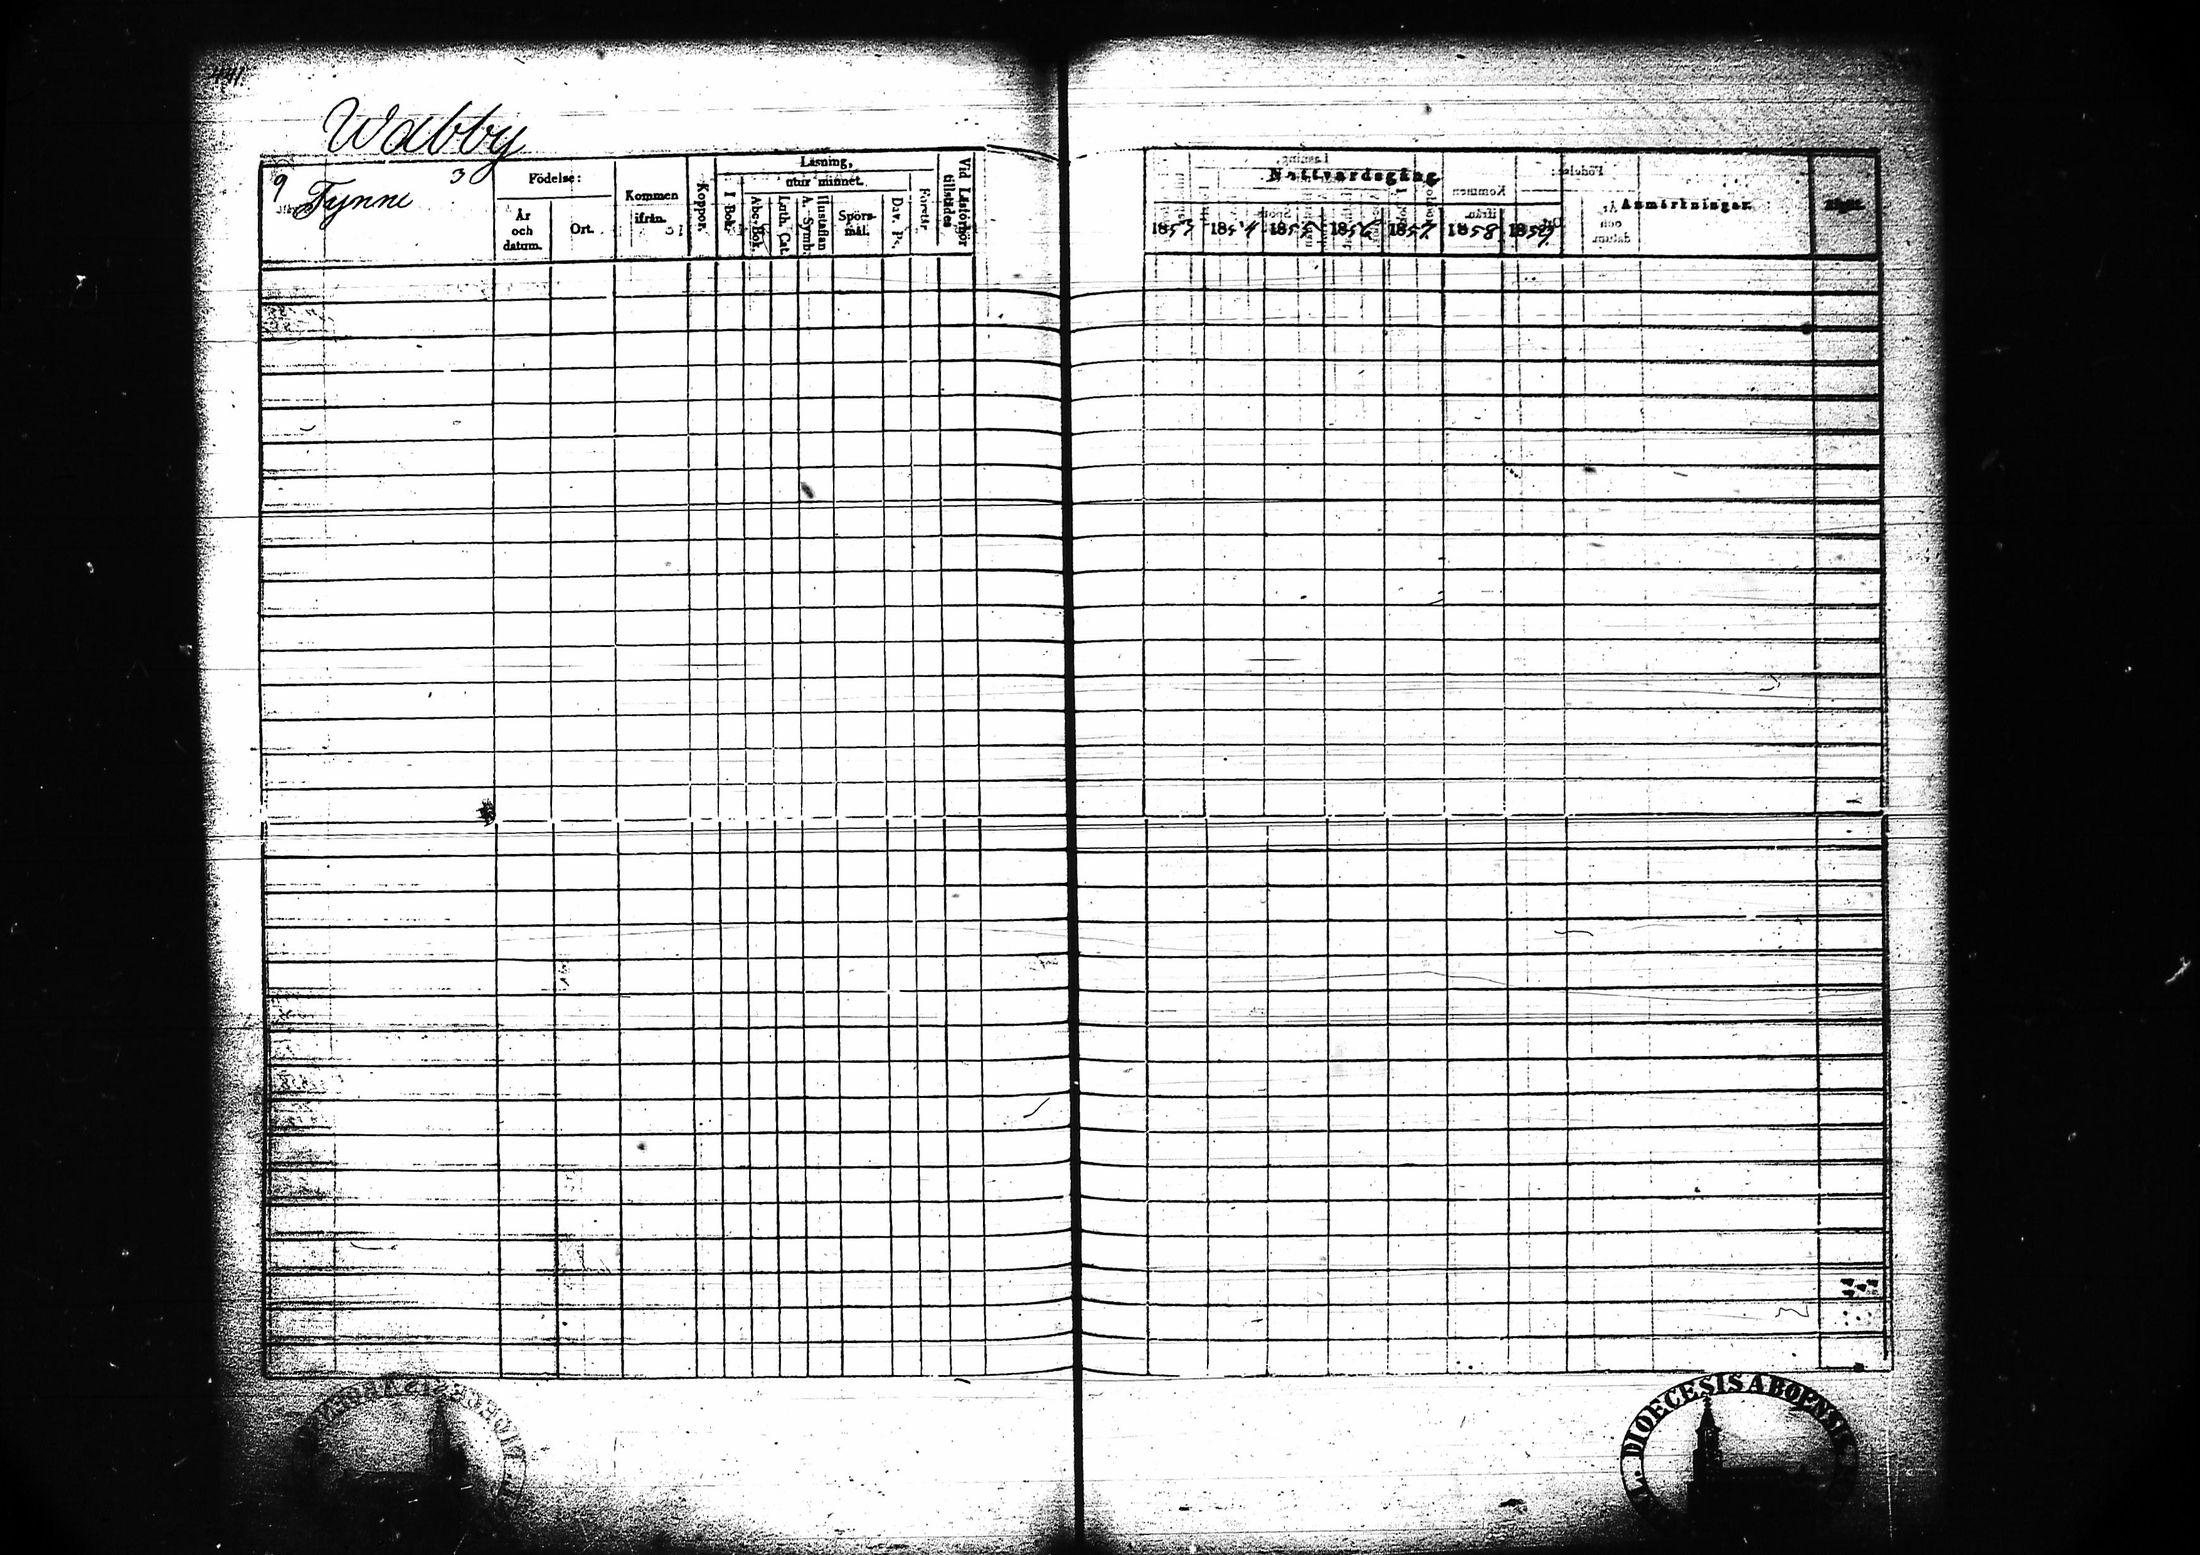 141
Wabby
9 Tynne 3
Födelse:
År och datum.
Ort.
Kommen ifrån.
Koppor.
Läsning,
utur minnet.
I Bok.
Abc-Bok.
Luth. Cat.
Hustaflan A. Symb.
Spörsmål.
Dav. Ps.
Förstår.
Vid Läsförhör tillstädes
Nattvardsgång
1853 1854 1855 1856 1857 1858 1859
Anmärkningar.
DIOECESIS ABOENSIS